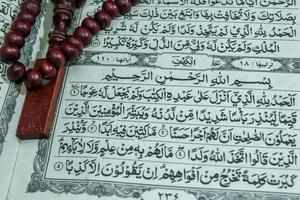 بِصَلَاتِكَ وَلَا تُخَافِتْ بِهَا وَابْتَغِ بَيْنَ ذَٰلِكَ سَبِيلًا
الْحَمْدُ لِلَّهِ الَّذِي لَمْ يَتَّخِذْ وَلَدًا وَلَمْ يَكُن لَّهُ شَرِيكٌ فِي
الْمُلْكِ وَلَمْ يَكُن لَّهُ وَلِيٌّ مِّنَ الذُّلِّ وَكَبِّرْهُ تَكْبِيرًا
١٨ الْكَهْف ١١٠
بِسْمِ اللَّهِ الرَّحْمَٰنِ الرَّحِيمِ
الْحَمْدُ لِلَّهِ الَّذِي أَنزَلَ عَلَىٰ عَبْدِهِ الْكِتَٰبَ وَلَمْ يَجْعَل لَّهُ عِوَجًا
قَيِّمًا لِّيُنذِرَ بَأْسًا شَدِيدًا مِّن لَّدُنْهُ وَيُبَشِّرَ الْمُؤْمِنِينَ الَّذِينَ
يَعْمَلُونَ الصَّٰلِحَٰتِ أَنَّ لَهُمْ أَجْرًا حَسَنًا مَّاكِثِينَ فِيهِ أَبَدًا وَيُنذِرَ
الَّذِينَ قَالُوا اتَّخَذَ اللَّهُ وَلَدًا مَّا لَهُم بِهِ مِنْ عِلْمٍ وَلَا لِآبَائِهِمْ
كَبُرَتْ كَلِمَةً تَخْرُجُ مِنْ أَفْوَاهِهِمْ إِن يَقُولُونَ إِلَّا كَذِبًا
٢٣٤